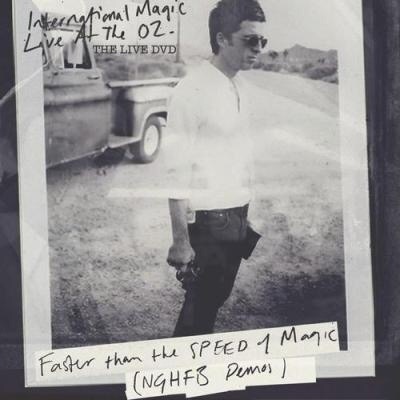 International Magic
Live At The O2-
THE LIVE DVD
Faster than the SPEED of Magic
(NGHFB Demos)